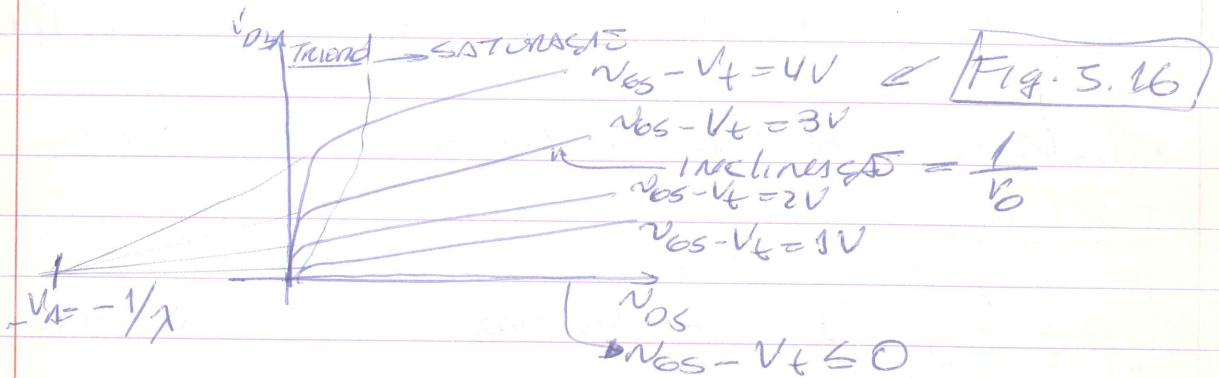 i_DS TRIODO → SATURAÇÃO
v_GS - V_t = 4V
Fig. 5.16
v_GS - V_t = 3V
INCLINAÇÃO = 1/r_o
v_GS - V_t = 2V
v_GS - V_t = 1V
-V_A = -1/λ
v_DS
v_GS - V_t ≤ 0